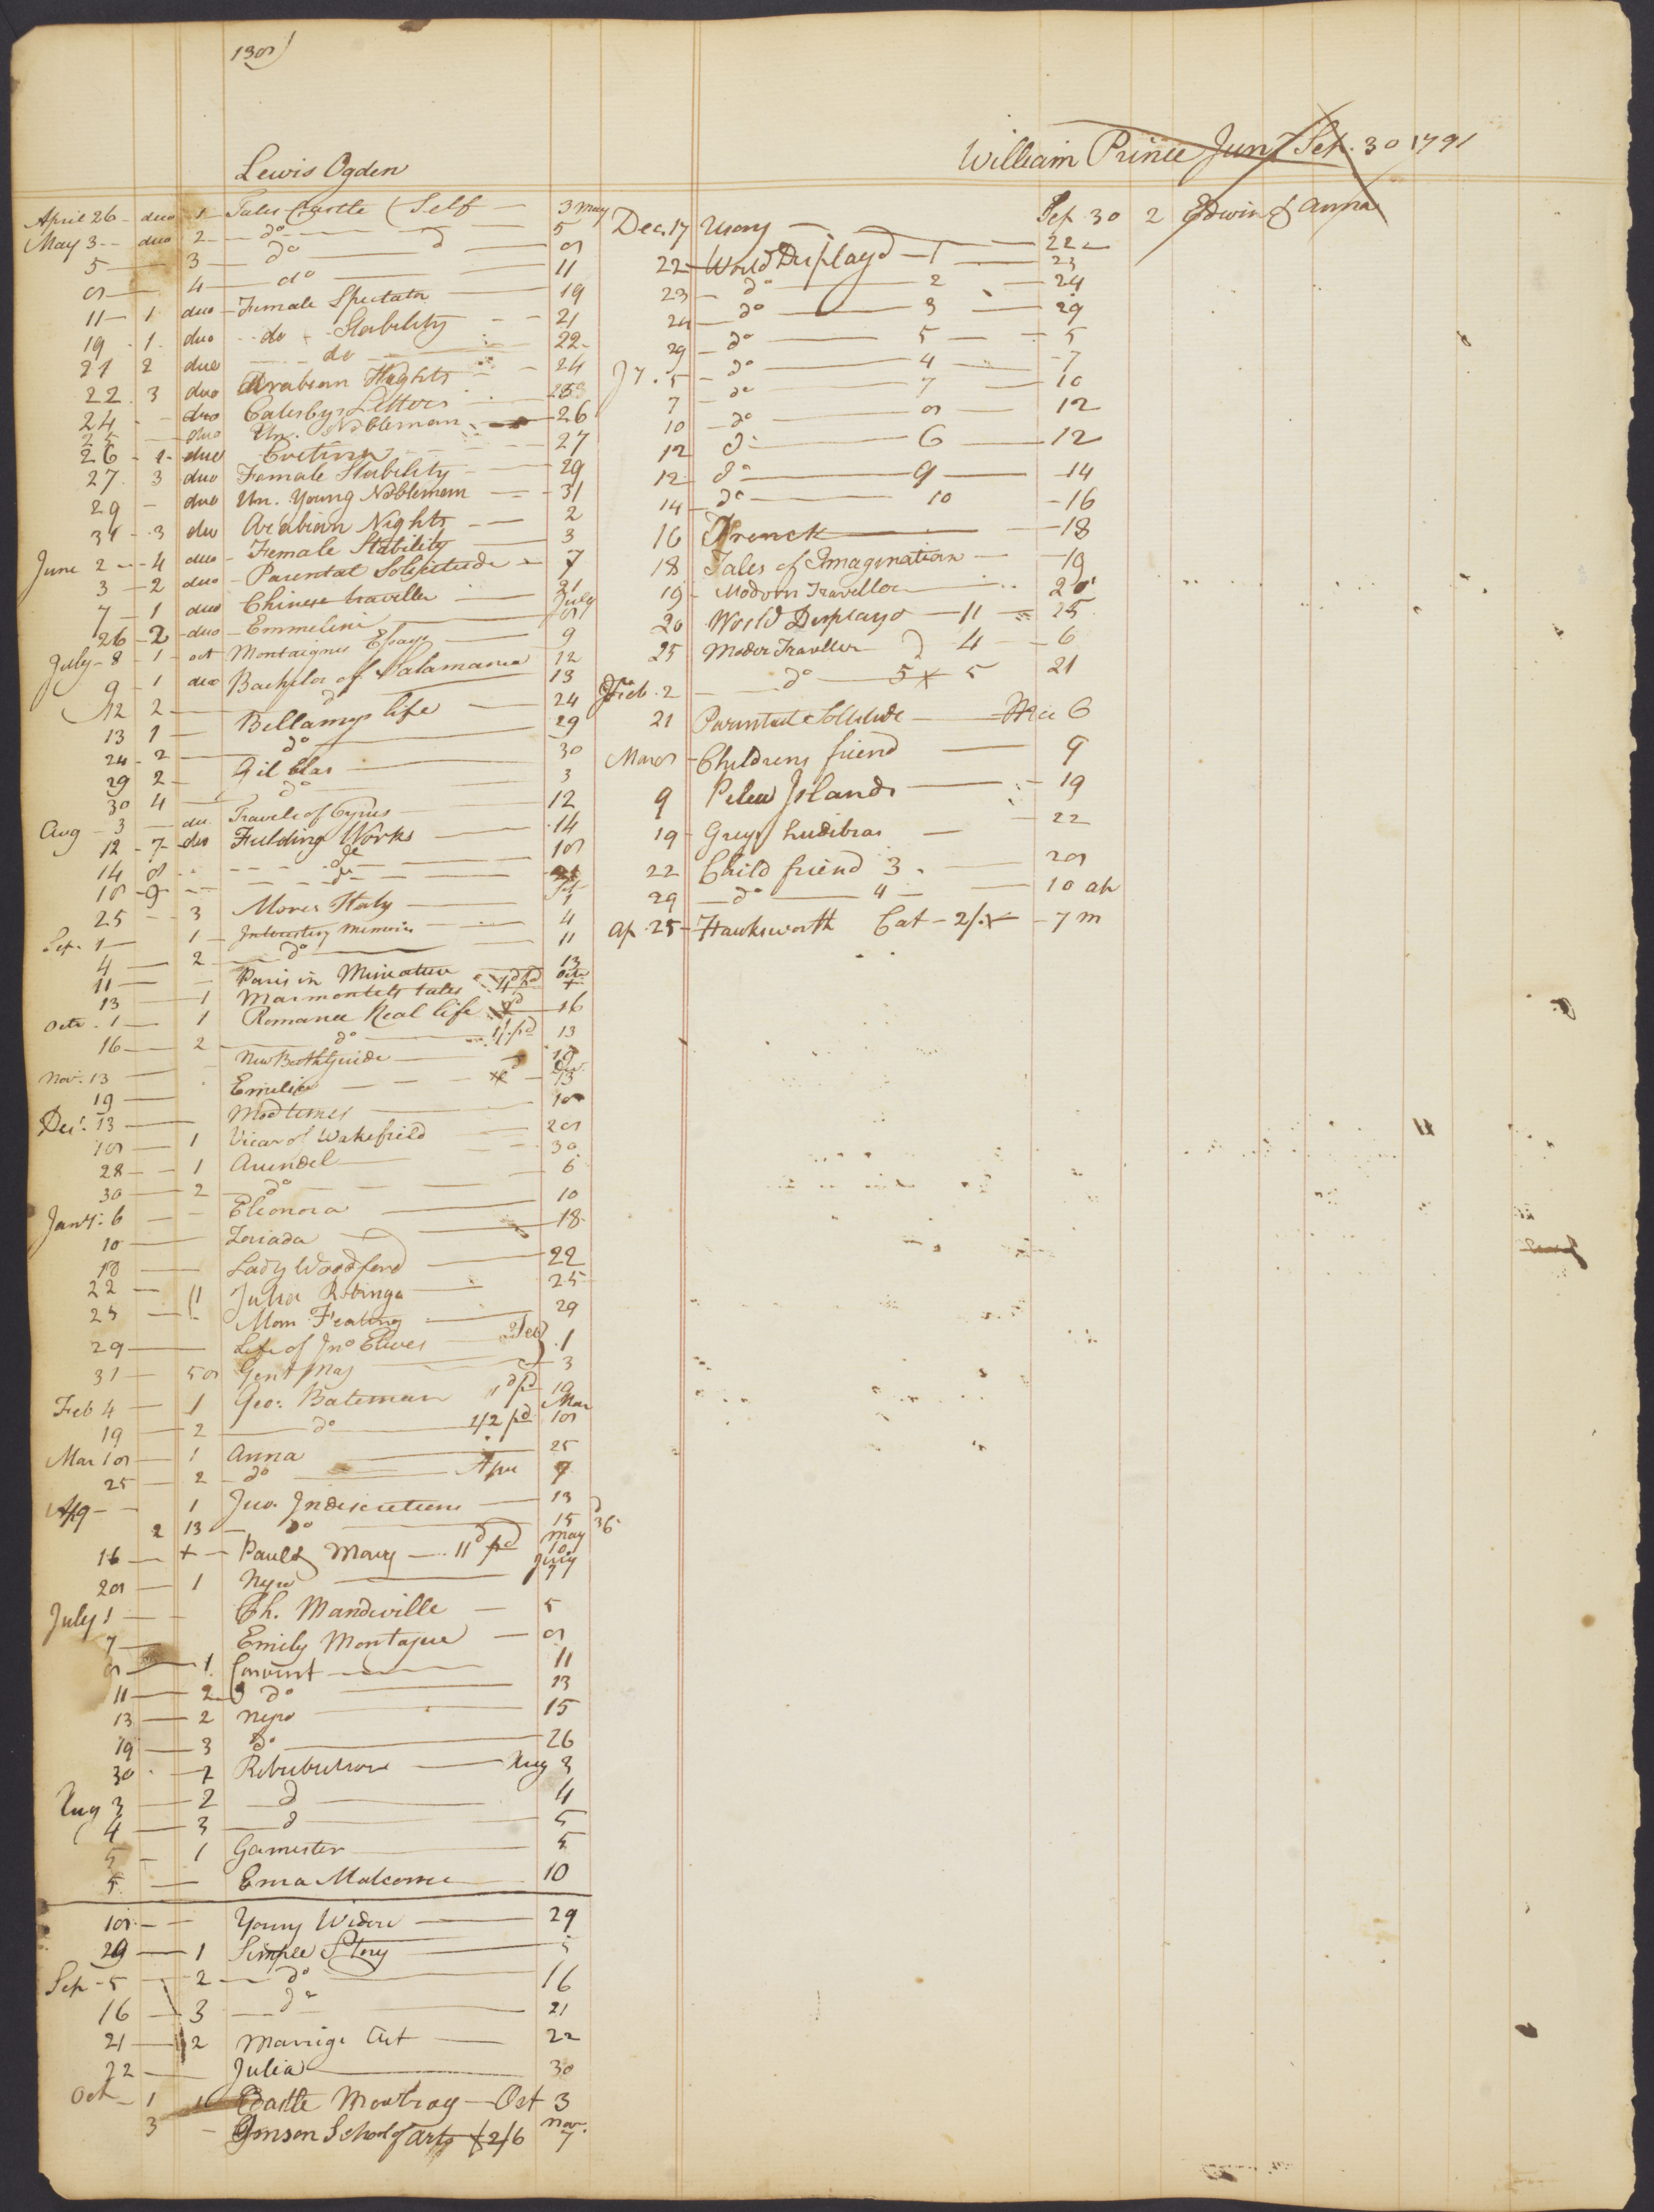 138
Lewis Ogden
April 26 - duo 1 - Tales Castle (Self - 3 May
May 3 - - duo 2 - do - 5
5 - 3 - do - 8
8 - 4 - do - 11
11 - 1 duo - Female Spectator - 19
19 - 1 - duo - do - Stability - 21
21 2 duo - do - 22
22 - 3 duo Arabian Nights - 24
24 - duo Catesbys Letters -
25 - duo Un. Nobleman - 26
26 - 1 - duo - 27
27 - 3 duo Female Stability - 29
29 - duo Un. Young Nobleman - 31
31 - 3 duo Arabian Nights - 2
June 2 - - 4 duo - Female Stability - 3
3 - 2 duo - Parental Solicitude - 7
7 - 1 duo Chinese traveller - 21
26 - 2 - duo - Emmeline - July 8
July - 8 - 1 - oct Montaignes Essays - 9
9 - 1 duo Bachelor of Salamanca 12
12 2 - do - 13
13 1 - Bellamys life - 24
24 - 2 - do - 29
29 2 - Gil blas - 30
30 4 - do - 3
Aug - 3 - du. Travels of Cyrus - 12
12 - 7 - duo Fielding Works - 14
14 8 - - do - 18
18 - 9 - - do - 21
25 - - 3 Mores Italy - Sep 1
Sep. 1 - 1 - Interesting Memoirs - 4
4 - 2 - do - 11
11 - - Paris in Miniature - 13
13 - 1 Marmontels tales - 4d pd Octr 1
Octr. 1 - 1 Romance Real life - 16
16 - 2 - do - 1/. pd 13
Novr. 13 - New Bath Guide - 19
19 - Emilia - Decr. 13
Decr. 13 - Mod times - 18
18 - 1 Vicar of Wakefield - 28
28 - - 1 Arundel - 30
30 - 2 - do - 6
Jany. 6 - - Eleonora - 10
10 - Zoriada - 18
18 - Lady Woodford - 22
22 - 11 Julia Robinga - 25
25 - Mom. - 29
29 - Life of Jno Elwes - Feb 1
31 - 58 Gent Mag - 3
Feb 4 - 1 Geo: Bateman 11d pd 19
19 - 2 - do - 2/2 pd. Mar 18
Mar 18 - 1 Anna - 25
25 - 2 - do - Apr 9
Ap 9 - - 1 Juv. Indiscretions - 13
2 13 - do - 15
16 - + - Paul & Mary - 11d pd May 10
28 - 1 - July 1
July 1 - - Ch. Mandeville - 5
7 - Emily Montague - 8
8 - 1. Convent - 11
11 - 2 do - 13
13 - 2 - 15
19 - 3 do - 26
30 - - Retribution - Aug 3
Aug 3 - 2 - d - 4
4 - 3 - d - 5
5 - 1 Gamester - 5
5 - Ema Malcome - 10
18 - - Young Widow - 29
29 - 1 Simple Story - 5
Sep - 5 - 2 - do - 16
16 - 3 - do - 21
21 - 2 Marrige Act - 22
22 - Julia - 30
Oct - 1 Castle Mowbray - Oct 3
3 - School of Arts 2/6 Nov. 7
William Prince Junr Sep. 30 1791
Sep 30 2 Edwin & Anna
Dec. 17 - 22 -
22 - World Displayd - 1 - 23
23 - do - 2 - 24
24 - do - 3 - 29
29 - do - 5 - 5
Jy. 5 - do - 4 - 7
7 - do - 7 - 10
10 - do - 8 - 12
12 do - 6 - 12
12 - do - 9 - 14
14 - do - 10 - 16
16 Trenck - 18
18 Tales of Imagination - 19
19 - Modern Traveller - 20
20 - World Displayd - 11 - 25
25 Moder Traveller 4 - 6
Feb. 2 - do - 5 x 5 21
21 Parental Sollitude - Mar 6
Mar 8 - Childrens friend - 9
9 Pelew Islands - 19
19 - Greys hudibras - 22
22 Child friend 3 - 28
29 - do - 4 - 10 ap
Ap. 25 - Hawksworth Cat - 2/. x - 7 m